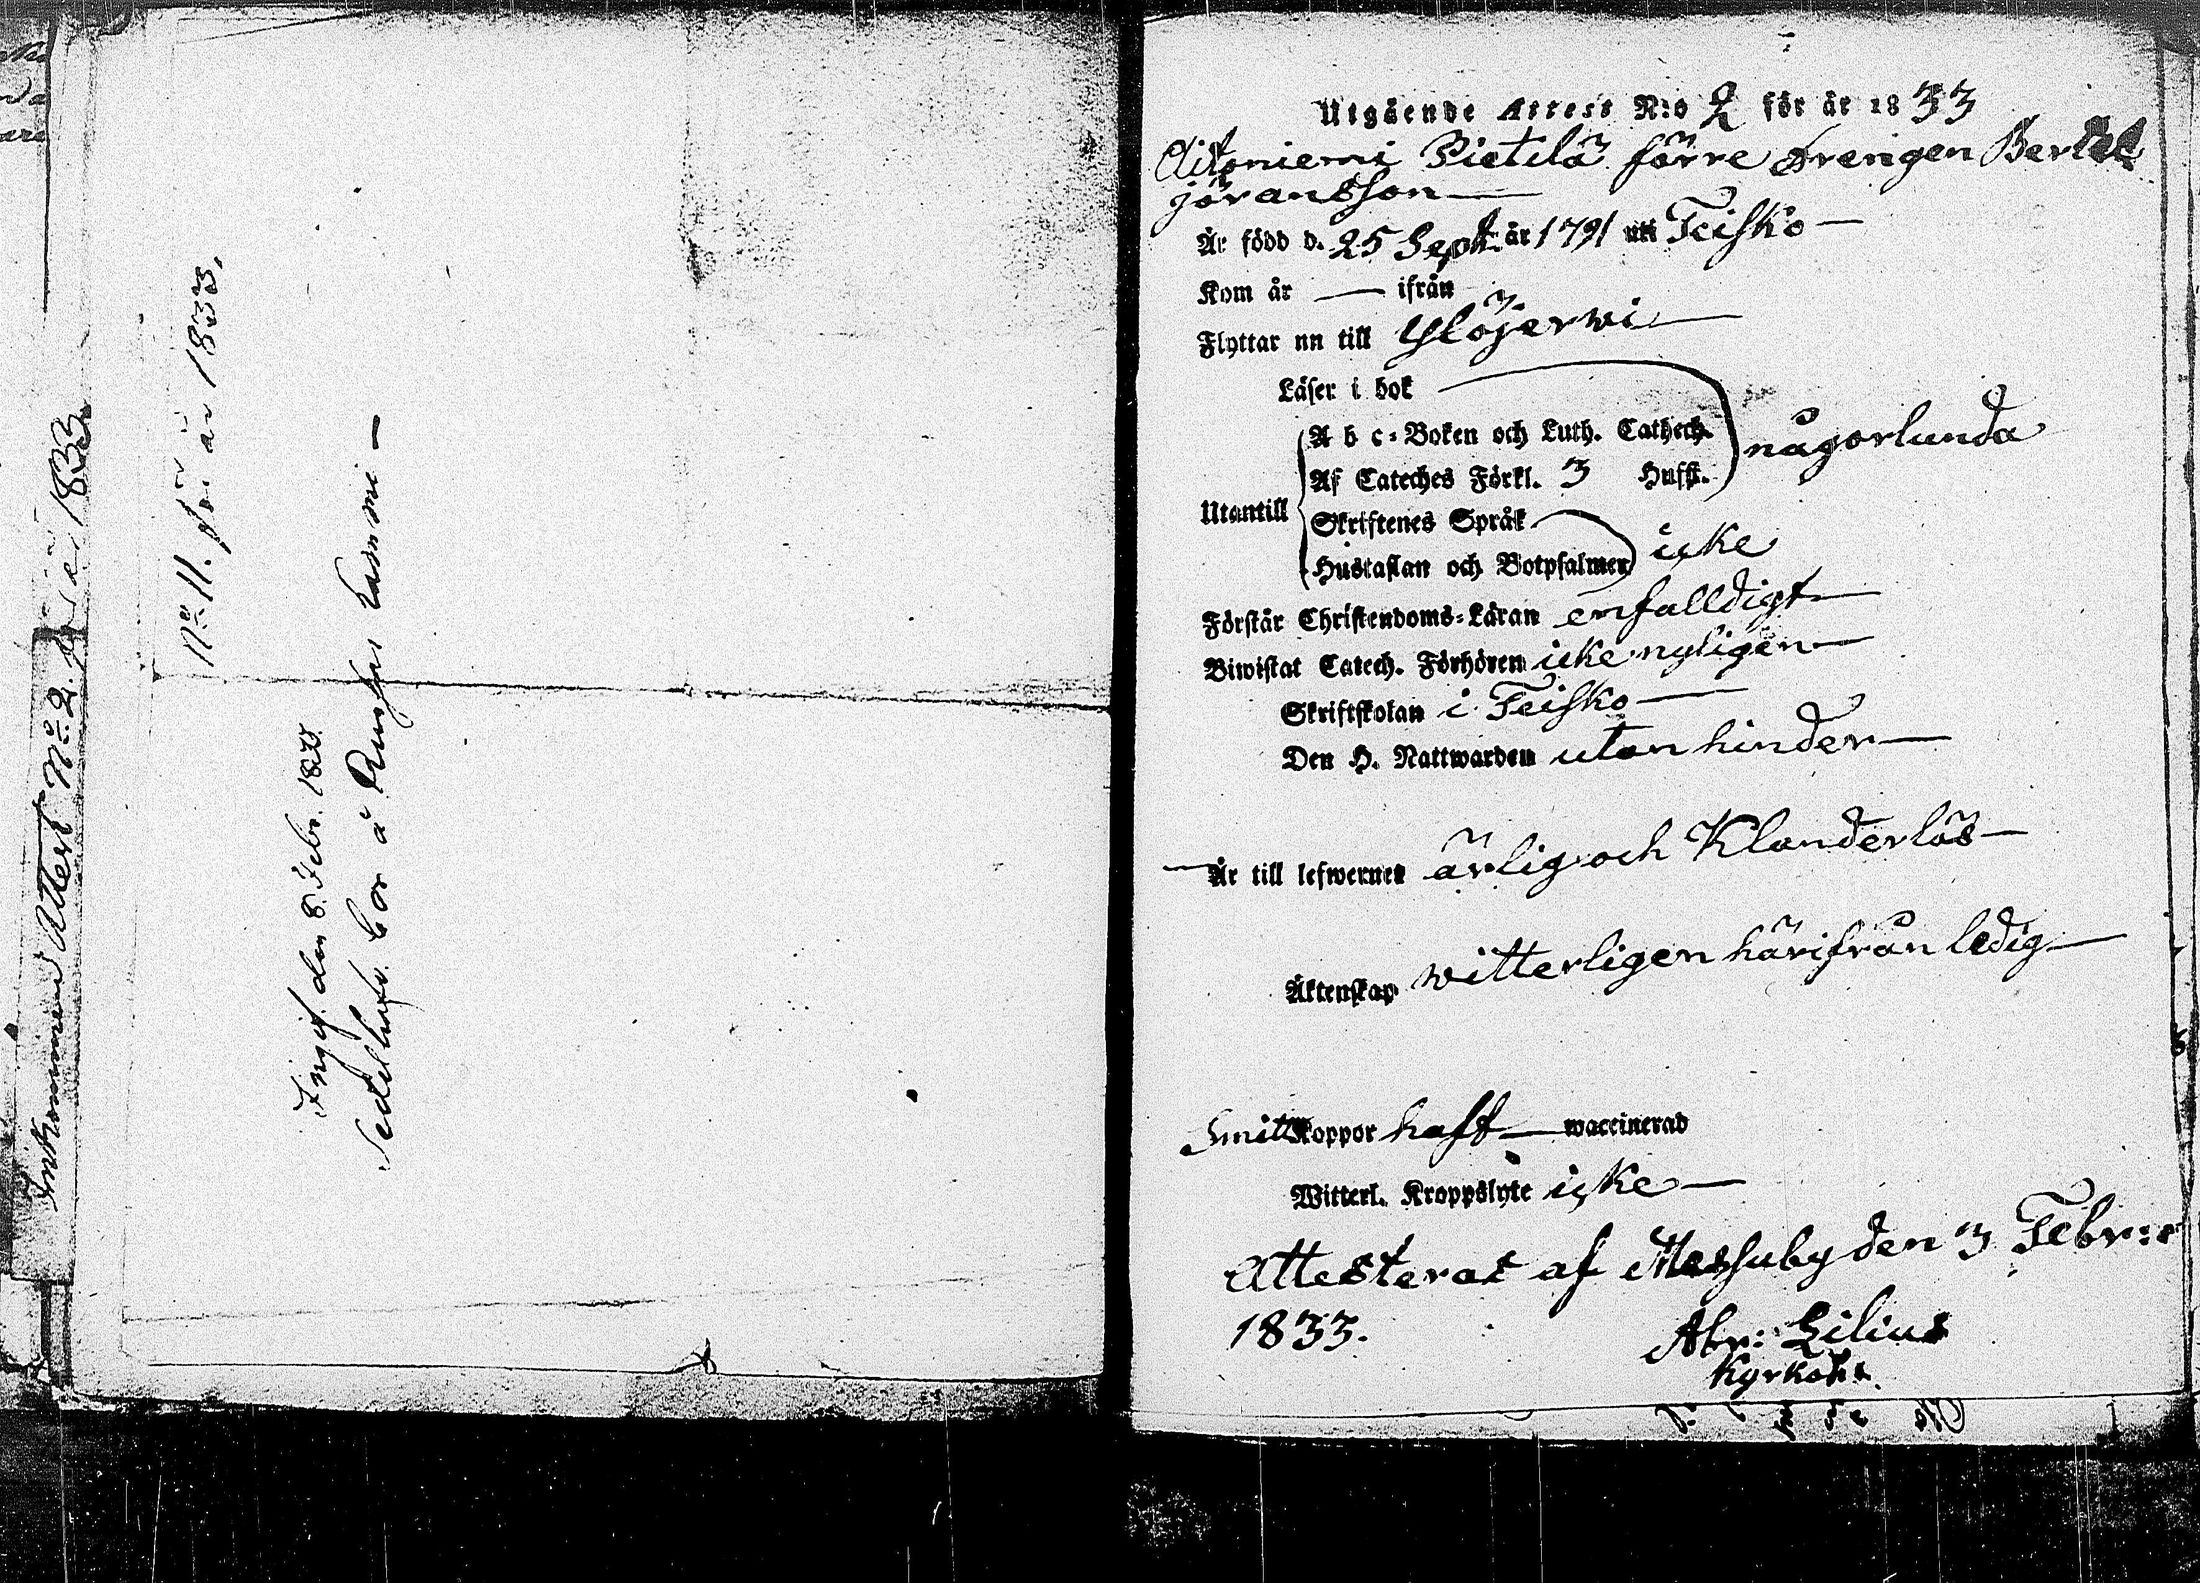 Inkommend Attest No 2. för år 1833
No 11. för år 1833.
Ingif. den 8 Febr. 1833.
bor å
Utgående Attest N:o 2 för år 1833
Aitoniemi Pietilä förre Drengen Bertel
Jöransson
Är född d. 25 Sept. år 1791 uti Teisko
Kom år — ifrån
Flyttar nu till Ylöjerwi
Läser i bok
A b c-Boken och Luth. Cathech.
någorlunda
Af Cateches Förkl. 3 Hufst.
Utantill
Skriftenes Språk
icke
Hustaflan och Botpsalmer
Förstår Christendoms-Läran enfalldigt
Biwistat Catech. Förhören icke nyligen
Skriftskolan i Teisko
Den H. Nattwarden utan hinder
Är till lefwernet ärlig och Klanderlös
Äktenskap witterligen härifrån ledig
Smittkoppor haft — waccinerad
Witterl. Kroppslyte icke
Attesteras af Messuby den 3 Febr:
1833.
Abr: Lilius
Kyrkoh: